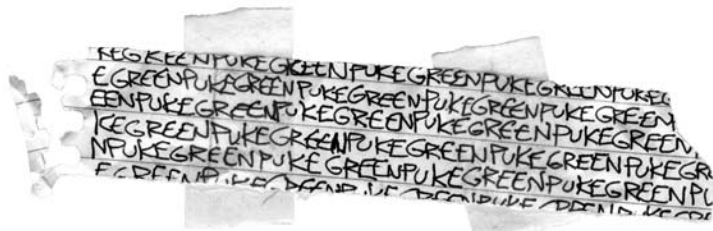 KEGREENPUKEGREENPUKEGREENPUKEGREENPUKEG
EGREENPUKEGREENPUKEGREENPUKEGREENPUKEGREEN
EENPUKEGREENPUKEGREENPUKEGREENPUKEGREEN
KEGREENPUKEGREENPUKEGREENPUKEGREENPUKEGR
NPUKEGREENPUKEGREENPUKEGREENPUKEGREENPU
EGREENPUKEGREENPUKEGREENPUKEGREENPUKEGR